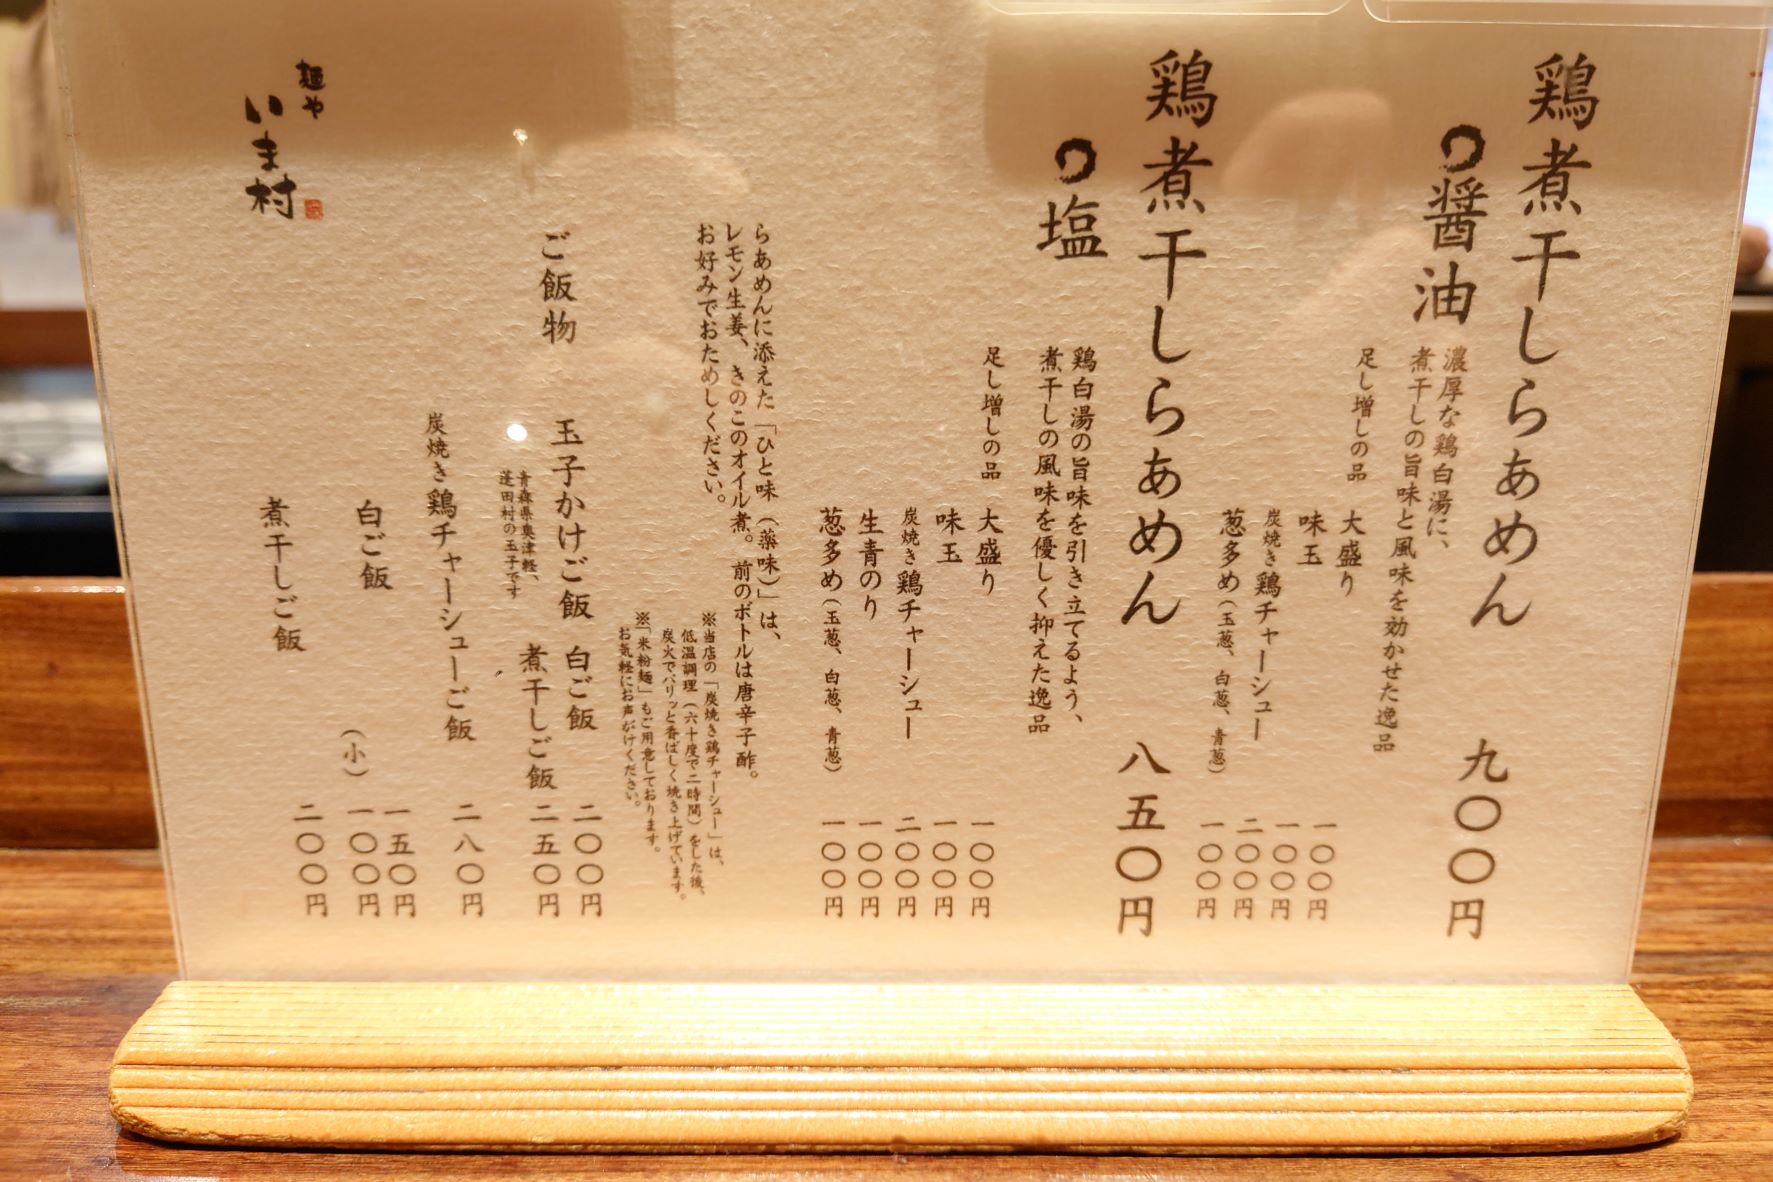 鶏煮干しらあめん 九〇〇円
醤油
濃厚な鶏白湯に、
煮干しの旨味と風味を効かせた逸品
足し増しの品 大盛り 一〇〇円
味玉 一〇〇円
炭焼き鶏チャーシュー 二〇〇円
葱多め(玉葱、白葱、青葱) 一〇〇円
鶏煮干しらあめん 八五〇円
塩
鶏白湯の旨味を引き立てるよう、
煮干しの風味を優しく抑えた逸品
足し増しの品 大盛り 一〇〇円
味玉 一〇〇円
炭焼き鶏チャーシュー 二〇〇円
生青のり 一〇〇円
葱多め(玉葱、白葱、青葱) 一〇〇円
らあめんに添えた「ひと味(薬味)」は、
レモン生姜、きのこのオイル煮。前のボトルは唐辛子酢。
お好みでおためしください。
※当店の「炭焼き鶏チャーシュー」は、
低温調理(六十度で二時間)をした後、
炭火でパリッと香ばしく焼き上げています。
※「米粉麺」もご用意しております。
お気軽にお声がけください。
ご飯物 玉子かけご飯 白ご飯 二〇〇円
煮干しご飯 二五〇円
青森県奥津軽、
蓬田村の玉子です
炭焼き鶏チャーシューご飯 二八〇円
白ご飯 一五〇円
(小) 一〇〇円
煮干しご飯 二〇〇円
麺や
いま村